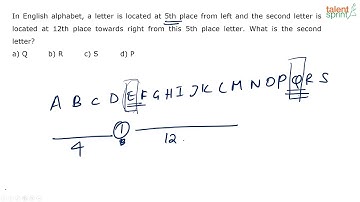 talent
sprint
In English alphabet, a letter is located at 5th place from left and the second letter is
located at 12th place towards right from this 5th place letter. What is the second
letter?
a) Q b) R c) S d) P
A B C D E F G H I J K L M N O P Q R S
1
4 12